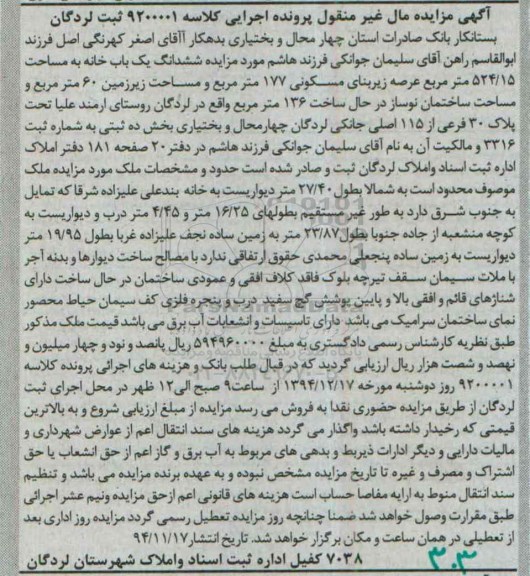 آگهی مزایده مال غیر منقول پرونده اجرایی کلاسه ۹۲۰۰۰۰۱ ثبت لردگان
بستانکار بانک صادرات استان چهار محال و بختیاری بدهکار آآقای اصغر کهرنگی اصل فرزند
ابوالقاسم راهن آقای سلیمان جوانکی فرزند هاشم مورد مزایده ششدانگ یک باب خانه به مساحت
۵۲۴/۱۵ متر مربع عرصه زیربنای مسکونی ۱۷۷ متر مربع و مساحت زیرزمین ۶۰ متر مربع و
مساحت ساختمان نوساز در حال ساخت ۱۳۶ متر مربع واقع در لردگان روستای ارمند علیا تحت
پلاک ۳۰ فرعی از ۱۱۵ اصلی جانکی لردگان چهارمحال و بختیاری بخش ده ثبتی به شماره ثبت
۳۳۱۶ و مالکیت آن به نام آقای سلیمان جوانکی فرزند هاشم در دفتر ۲۰ صفحه ۱۸۱ دفتر املاک
اداره ثبت اسناد واملاک لردگان ثبت و صادر شده است حدود و مشخصات ملک مورد مزایده ملک
موصوف محدود است به شمالا بطول ۲۷/۴۰ متر دیواریست به خانه بندعلی علیزاده شرقا که تمایل
به جنوب شرق دارد به طور غیر مستقیم بطولهای ۱۶/۲۵ متر و ۴/۴۵ متر درب و دیواریست به
کوچه منشعبه از جاده جنوبا بطول ۲۳/۸۷ متر به زمین ساده نجف علیزاده غربا بطول ۱۹/۹۵ متر
دیواریست به زمین ساده پنجعلی محمدی حقوق ارتفاقی ندارد با مصالح ساخت دیوارها و بدنه آجر
با ملات سیمان سقف تیرچه بلوک فاقد کلاف افقی و عمودی ساختمان در حال ساخت دارای
شناژهای قائم و افقی بالا و پایین پوشش گچ سفید درب و پنجره فلزی کف سیمان حیاط محصور
نمای ساختمان سرامیک می باشد دارای تاسیسات و انشعابات آب برق می باشد قیمت ملک مذکور
طبق نظریه کارشناس رسمی دادگستری به مبلغ ۵۹۴۹۶۰۰۰۰ ریال پانصد و نود و چهار میلیون و
نهصد و شصت هزار ریال ارزیابی گردید که در قبال طلب بانک و هزینه های اجرائی پرونده کلاسه
۹۲۰۰۰۰۱ روز دوشنبه مورخه ۱۳۹۴/۱۲/۱۷ از ساعت ۹ صبح الی ۱۲ ظهر در محل اجرای ثبت
لردگان از طریق مزایده حضوری نقدا به فروش می رسد مزایده از مبلغ ارزیابی شروع و به بالاترین
قیمتی که رخیدار داشته باشد واگذار می گردد هزینه های سند انتقال اعم از عوارض شهرداری و
مالیات دارایی و دیگر ادارات ذیربط و بدهی های مربوط به آب برق و گاز اعم از حق انشعاب یا حق
اشتراک و مصرف و غیره تا تاریخ مزایده مشخص نبوده و به عهده برنده مزایده می باشد و تنظیم
سند انتقال منوط به ارایه مفاصا حساب است هزینه های قانونی اعم ازحق مزایده ونیم عشر اجرائی
طبق مقرارت وصول خواهد شد ضمنا چنانچه روز مزایده تعطیل رسمی گردد مزایده روز اداری بعد
از تعطیلی در همان ساعت و مکان برگزار خواهد شد. تاریخ انتشار ۹۴/۱۱/۱۷
۷۰۳۸ کفیل اداره ثبت اسناد واملاک شهرستان لردگان
۳۰۳